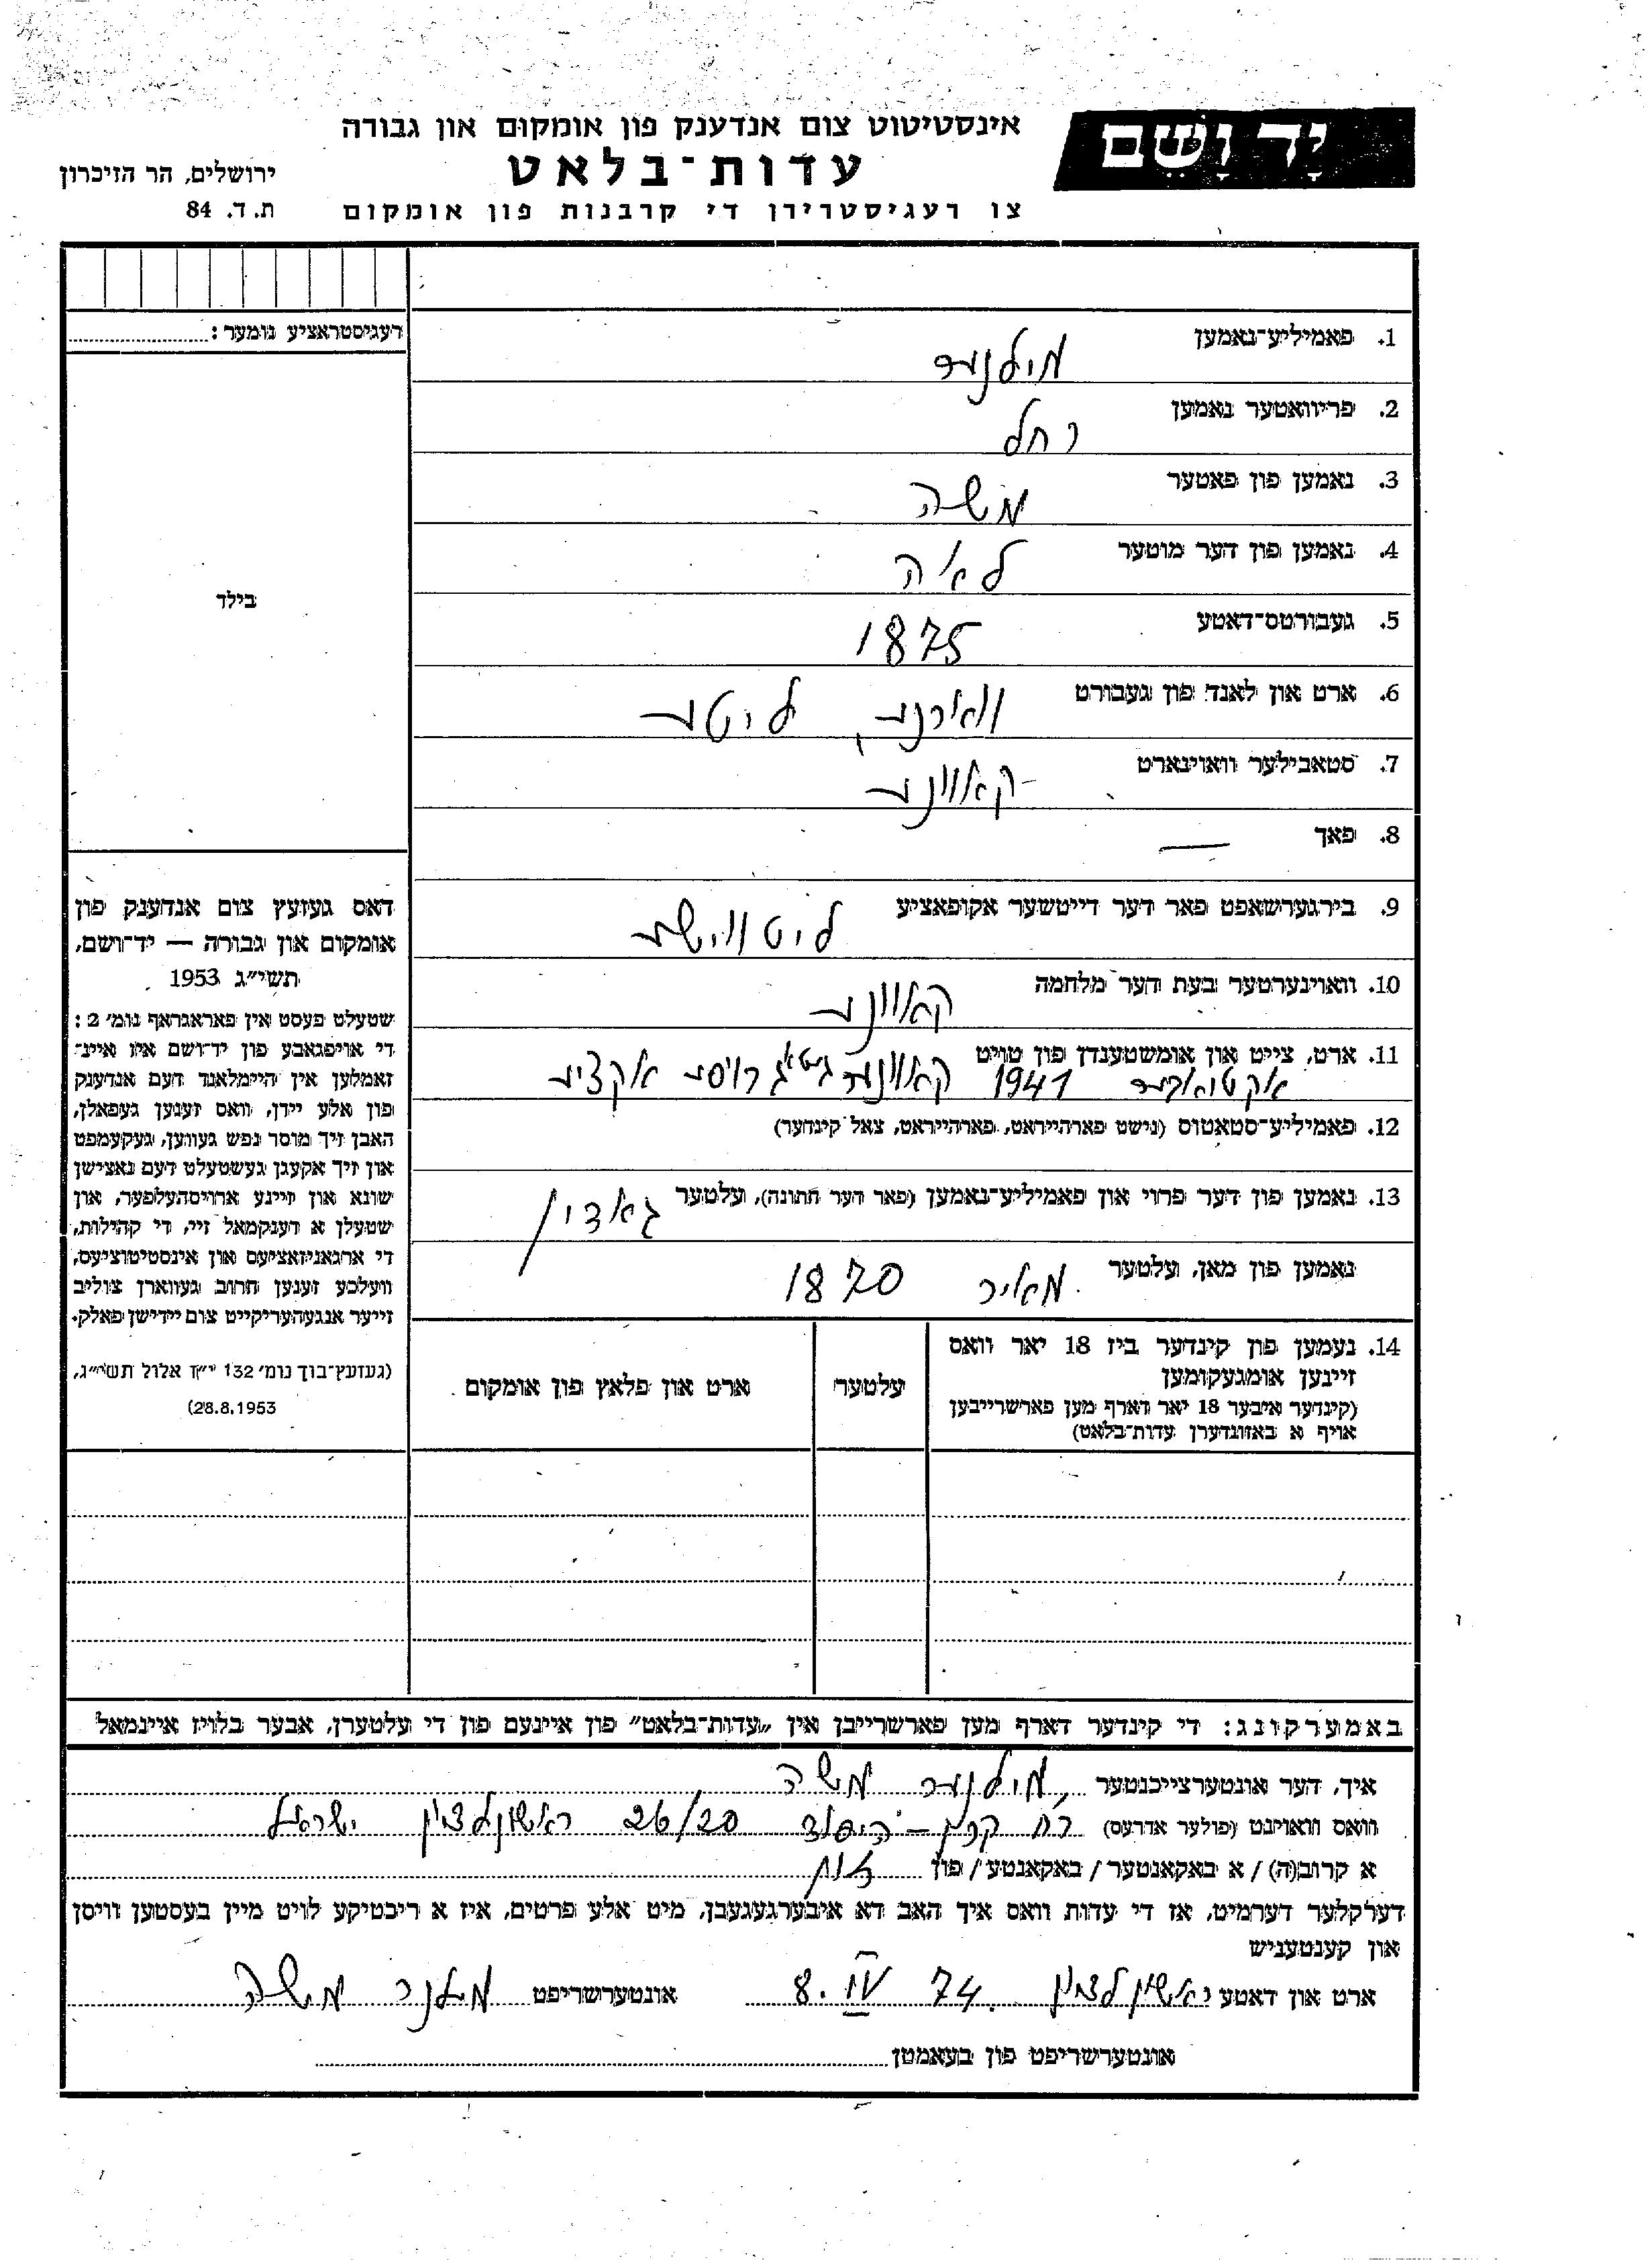 יָד וָשֵׁם
אינסטיטוט צום אנדענק פון אומקום און גבורה
עדות־בלאט
צו רעגיסטרירן די קרבנות פון אומקום
ירושלים, הר הזיכרון
ת. ד. 84
רעגיסטראציע נומער:
בילד
דאס געזעץ צום אנדענק פון
אומקום און גבורה — יד־ושם,
תשי״ג 1953
שטעלט פעסט אין פאראגראף נומ׳ 2:
די אויפגאבע פון יד־ושם איז איינ־
זאמלען אין היימלאנד דעם אנדענק
פון אלע יידן, וואס זענען געפאלן,
האבן זיך מוסר נפש געווען, געקעמפט
און זיך אקעגן געשטעלט דעם נאצישן
שונא און זיינע ארויסהעלפער, און
שטעלן א דענקמאל זיי, די קהילות,
די ארגאניזאציעס און אינסטיטוציעס,
וועלכע זענען חרוב געווארן צוליב
זייער אנגעהעריקייט צום יידישן פאלק.
(געזעץ־בוך נומ׳ 132 י״ז אלול תשי״ג,
28.8.1953)
1. פאמיליע־נאמען
מילנער
2. פריוואטער נאמען
רחל
3. נאמען פון פאטער
משה
4. נאמען פון דער מוטער
לאה
5. געבורטס־דאטע
1875
6. ארט און לאנד פון געבורט ווארנע, ליטע
7. סטאבילער וואוינארט
קאוונע
8. פאך —
9. בירגערשאפט פאר דער דייטשער אקופאציע ליטווישע
10. וואוינערטער בעת דער מלחמה
קאוונע
11. ארט, צייט און אומשטענדן פון טויט
אקטאבער 1941 קאוונער געטא גרויסע אקציע
12. פאמיליע־סטאטוס (נישט פארהייראט, פארהייראט, צאל קינדער)
13. נאמען פון דער פרוי און פאמיליע־נאמען (פאר דער חתונה), עלטער גאדין
נאמען פון מאן, עלטער מאיר 1870
14. נעמען פון קינדער ביז 18 יאר וואס
זיינען אומגעקומען
(קינדער איבער 18 יאר דארף מען פארשרייבען
אויף א באזונדערן עדות־בלאט)
עלטער
ארט און פלאץ פון אומקום
באמערקונג: די קינדער דארף מען פארשרייבן אין „עדות־בלאט” פון איינעם פון די עלטערן, אבער בלויז איינמאל
איך, דער אונטערצייכנטער מילנער משה
וואס וואוינט (פולער אדרעס) רח קרן־היסוד 26/20 ראשון לציון ישראל
א קרוב(ה) / א באקאנטער / באקאנטע / פון זון
דערקלער דערמיט, אז די עדות וואס איך האב דא איבערגעגעבן, מיט אלע פרטים, איז א ריכטיקע לויט מיין בעסטען וויסן
און קענטעניש
ארט און דאטע ראשון לציון 8. IV 74. אונטערשריפט מילנר משה
אונטערשריפט פון בעאמטן